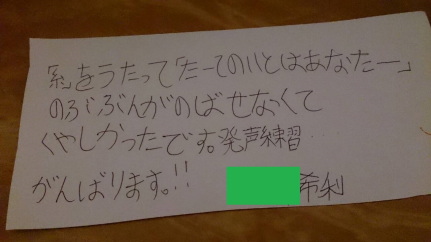 「糸」をうたって「たーての糸とはあなたー」
のぶぶんがのばせなくて
くやしかったです。発声練習
がんばります。!! 希利